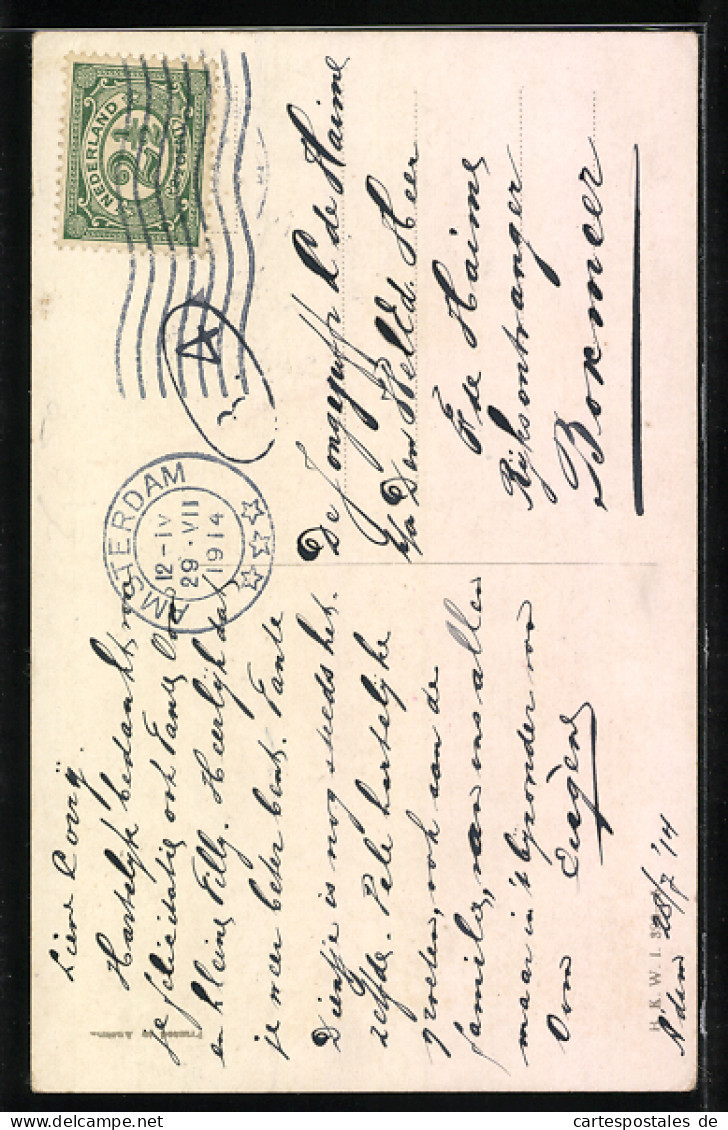 NEDERLAND
2½
AMSTERDAM
12-IV
29·VII
1914
A
De Jongejuffr L de Haime
p/a Den WelEd. Heer
F de Haime
Rijksontvanger
Boxmeer
Lieve Louij.
Hartelijk bedankt voor
je felicitatie ook Tante Oom
en kleine Tilly. Heerlijk dat
je weer beter bent. Tante
Dientje is nog steeds het-
zelfde. Vele hartelijke
groeten, ook aan de
familie, van ons allen
maar in 't bijzonder van
Oom Eugène
A'dam 28/7 '14
B. K. W. I.
Printed in Austria.
www.delcampe.net
cartespostales de